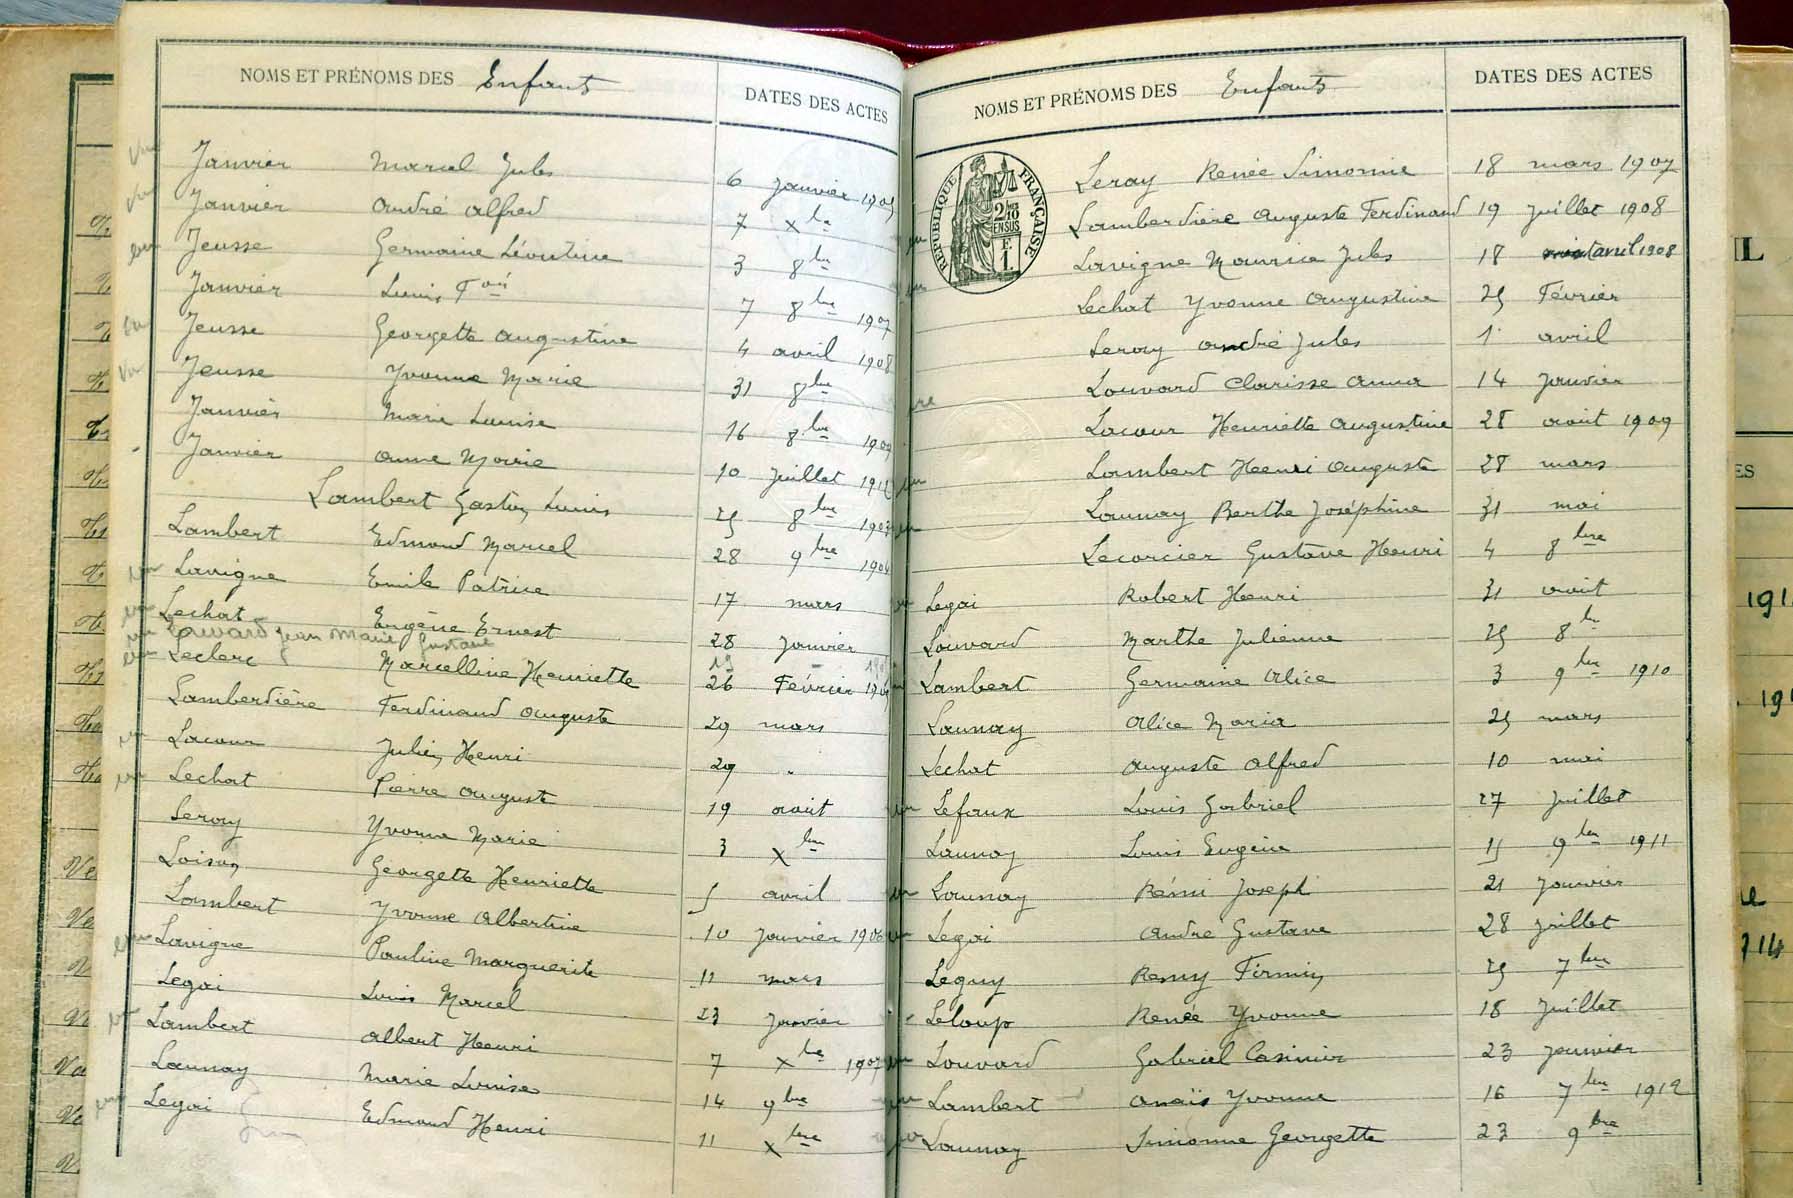 NOMS ET PRÉNOMS DES Enfants DATES DES ACTES
Janvier Marcel Jules 6 Janvier 1905
Janvier André Alfred 7 Xbre
Jeusse Germaine Léontine 3 8bre
Janvier Louis Fois 7 8bre 1907
Jeusse Georgette Augustine 4 avril 1908
Jeusse Yvonne Marie 31 8bre
Janvier Marie Louise 16 8bre 1909
Janvier Anne Marie 10 Juillet 1912
Lambert Gaston Louis 25 8bre 1903
Lambert Edmond Marcel 28 9bre 1904
Lavigne Emile Patrice 17 mars
Lechat Eugène Ernest 28 Janvier
Louvard Jean Marie Gustave 19
Leclerc Marcelline Henriette 26 Février
Lamberdière Ferdinand Auguste 29 mars
Lacour Julien Henri 29
Lechat Pierre Auguste 19 août
Leroy Yvonne Marie 3 Xbre
Loison Georgette Henriette 5 avril
Lambert Yvonne Albertine 10 Janvier 1906
Lavigne Pauline Marguerite 11 mars
Legai Louis Marcel 23 Janvier
Lambert Albert Henri 7 Xbre 1907
Launay Marie Louise 14 9bre
Legai Edmond Henri 11 Xbre
NOMS ET PRÉNOMS DES Enfants DATES DES ACTES
RÉPUBLIQUE FRANÇAISE
2/10
EN SUS
F.
1.
Leray Renée Simonne 18 mars 1907
Lamberdière Auguste Ferdinand 19 Juillet 1908
Lavigne Maurice Jules 18 avril 1908
Lechat Yvonne Augustine 25 Février
Leroy André Jules 1 avril
Louvard Clarisse Anna 14 Janvier
Lacour Henriette Augustine 28 août 1909
Lambert Henri Auguste 28 mars
Launay Berthe Joséphine 31 mai
Lecorcier Gustave Henri 4 8bre
Legai Robert Henri 31 août
Louvard Marthe Julienne 25 8bre
Lambert Germaine Alice 3 9bre 1910
Launay Alice Maria 25 mars
Lechat Auguste Alfred 10 mai
Lefaux Louis Gabriel 27 Juillet
Launay Louis Eugène 15 9bre 1911
Launay Rémi Joseph 21 Janvier
Legai André Gustave 28 Juillet
Leguy Remy Firmin 25 7bre
Leloup Renée Yvonne 18 Juillet
Louvard Gabriel Casimir 23 Janvier
Lambert Anaïs Yvonne 16 7bre 1912
Launay Simonne Georgette 23 9bre